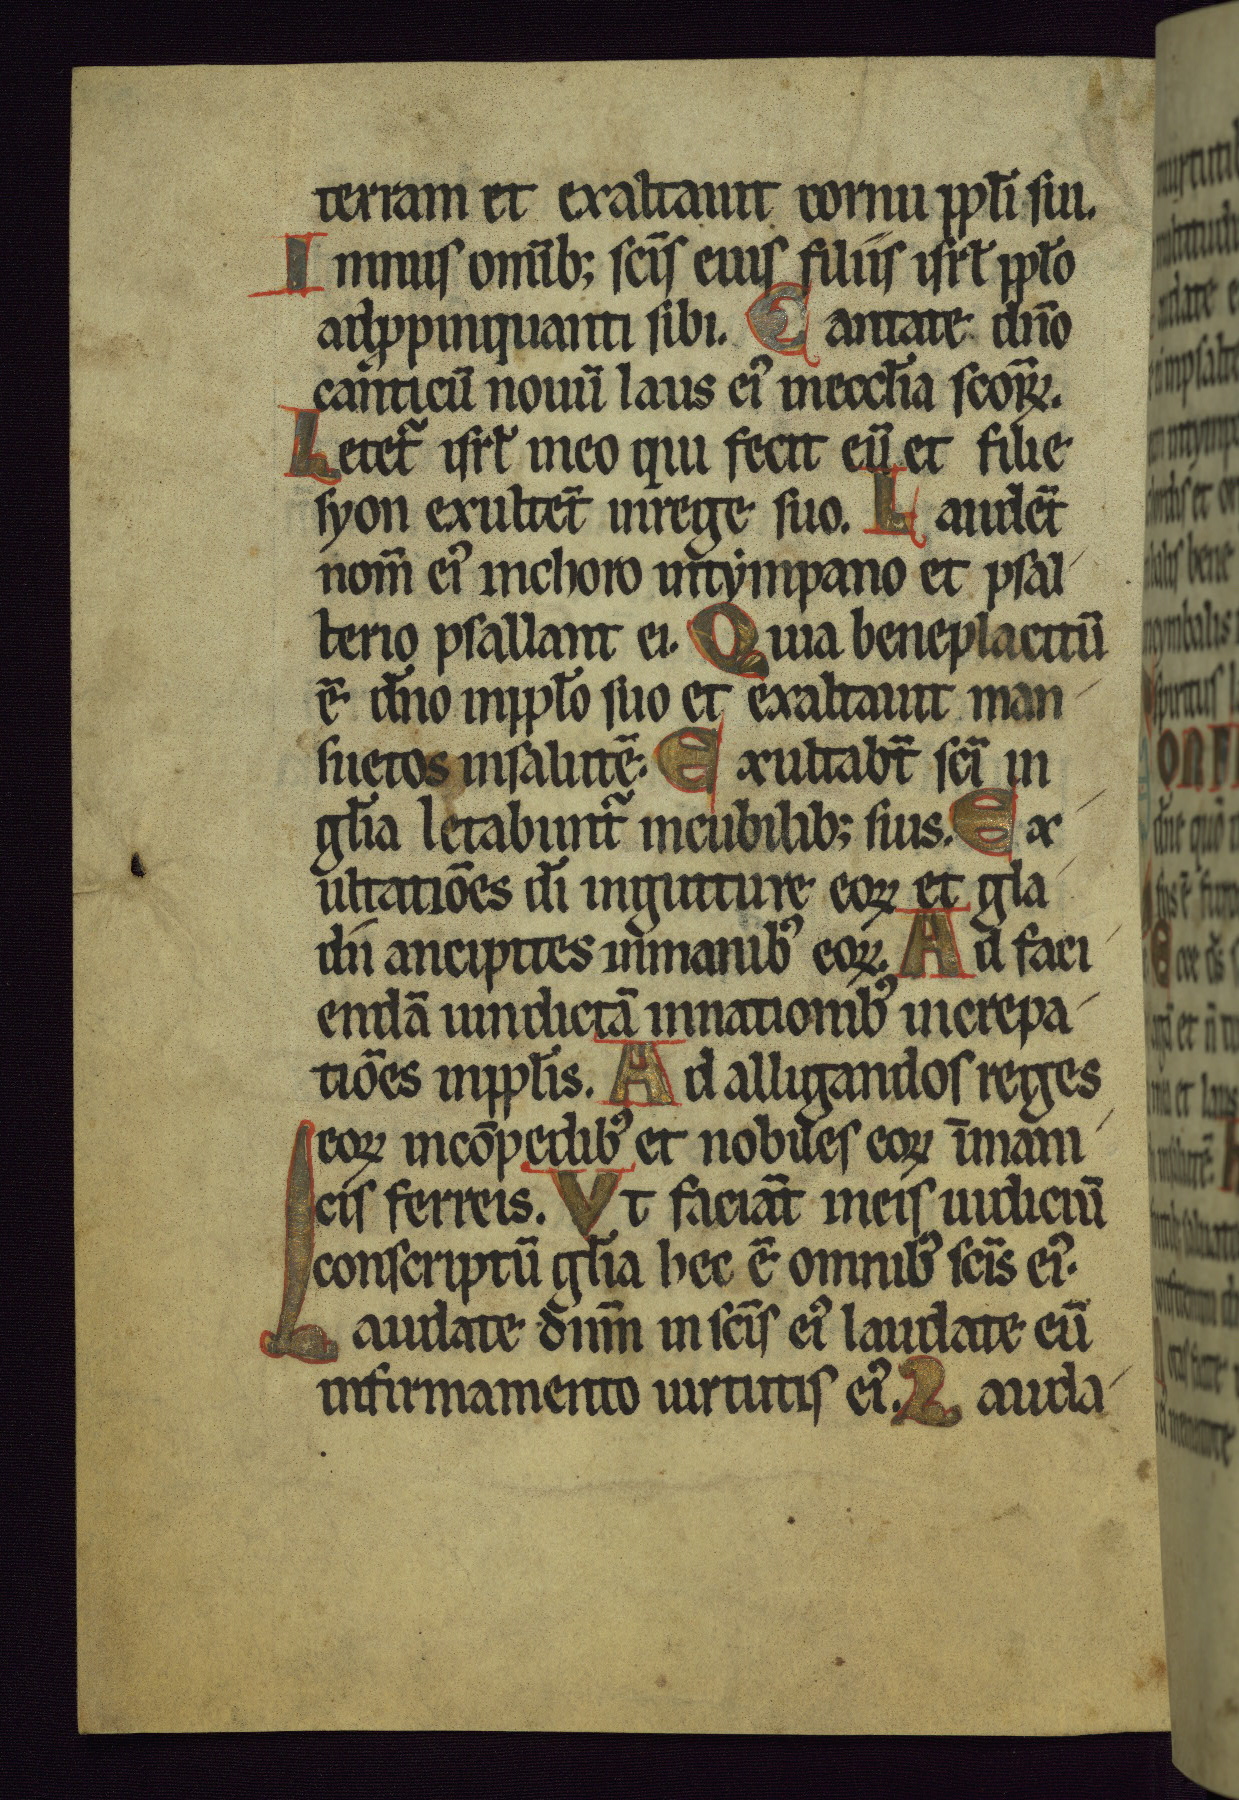 terram et exaltauit cornu ppl̅i sui.
Imnus omi̅b; sc̅is eius filiis isrl̅ ppl̅o
adppinquanti sibi. Cantate dn̅o
canticu̅ nouu̅ laus ei᾽ ineccl̅ia sco̅ꝝ.
Letet᷑ isrl̅ ineo qui fecit eu̅ et filie
syon exulte̅t inrege suo. Laude̅t
nom̅ ei᾽ inchoro intympano et psal
terio psallant ei. Quia beneplacitu̅
e̅ dn̅o inppl̅o suo et exaltauit man
suetos insalute̅. Exultab̅t sc̅i in
gl̅ia letabunt᷑ incubilib; suis. Ex
ultatio̅es di̅ ingutture eoꝝ et gla
dii ancipites inmanib᾽ eoꝝ. Ad faci
enda̅ uindicta̅ innationib᾽ increpa
tio̅es inppl̅is. Ad alligandos reges
eoꝝ inco̅pedib᾽ et nobiles eoꝝ i̅mani
cis ferreis. Vt facia̅t ineis iudiciu̅
conscriptu̅ gl̅ia hec e̅ omnib᾽ sc̅is ei᾽.
Laudate dn̅m in sc̅is ei᾽ laudate eu̅
infirmamento uirtutis ei᾽. Lauda